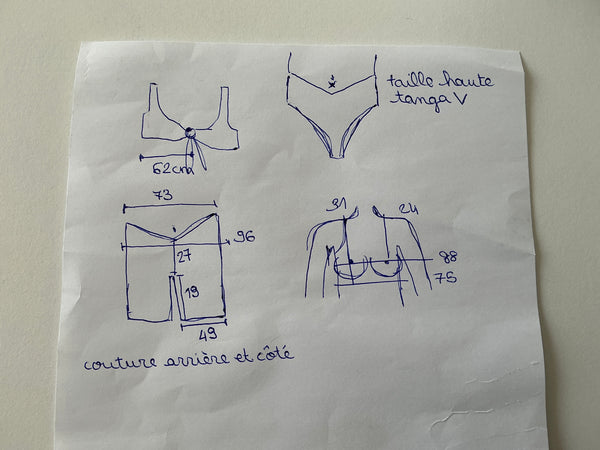 taille haute
tanga V
62cm
73
96
27
19
49
couture arrière et côté
31
24
88
75